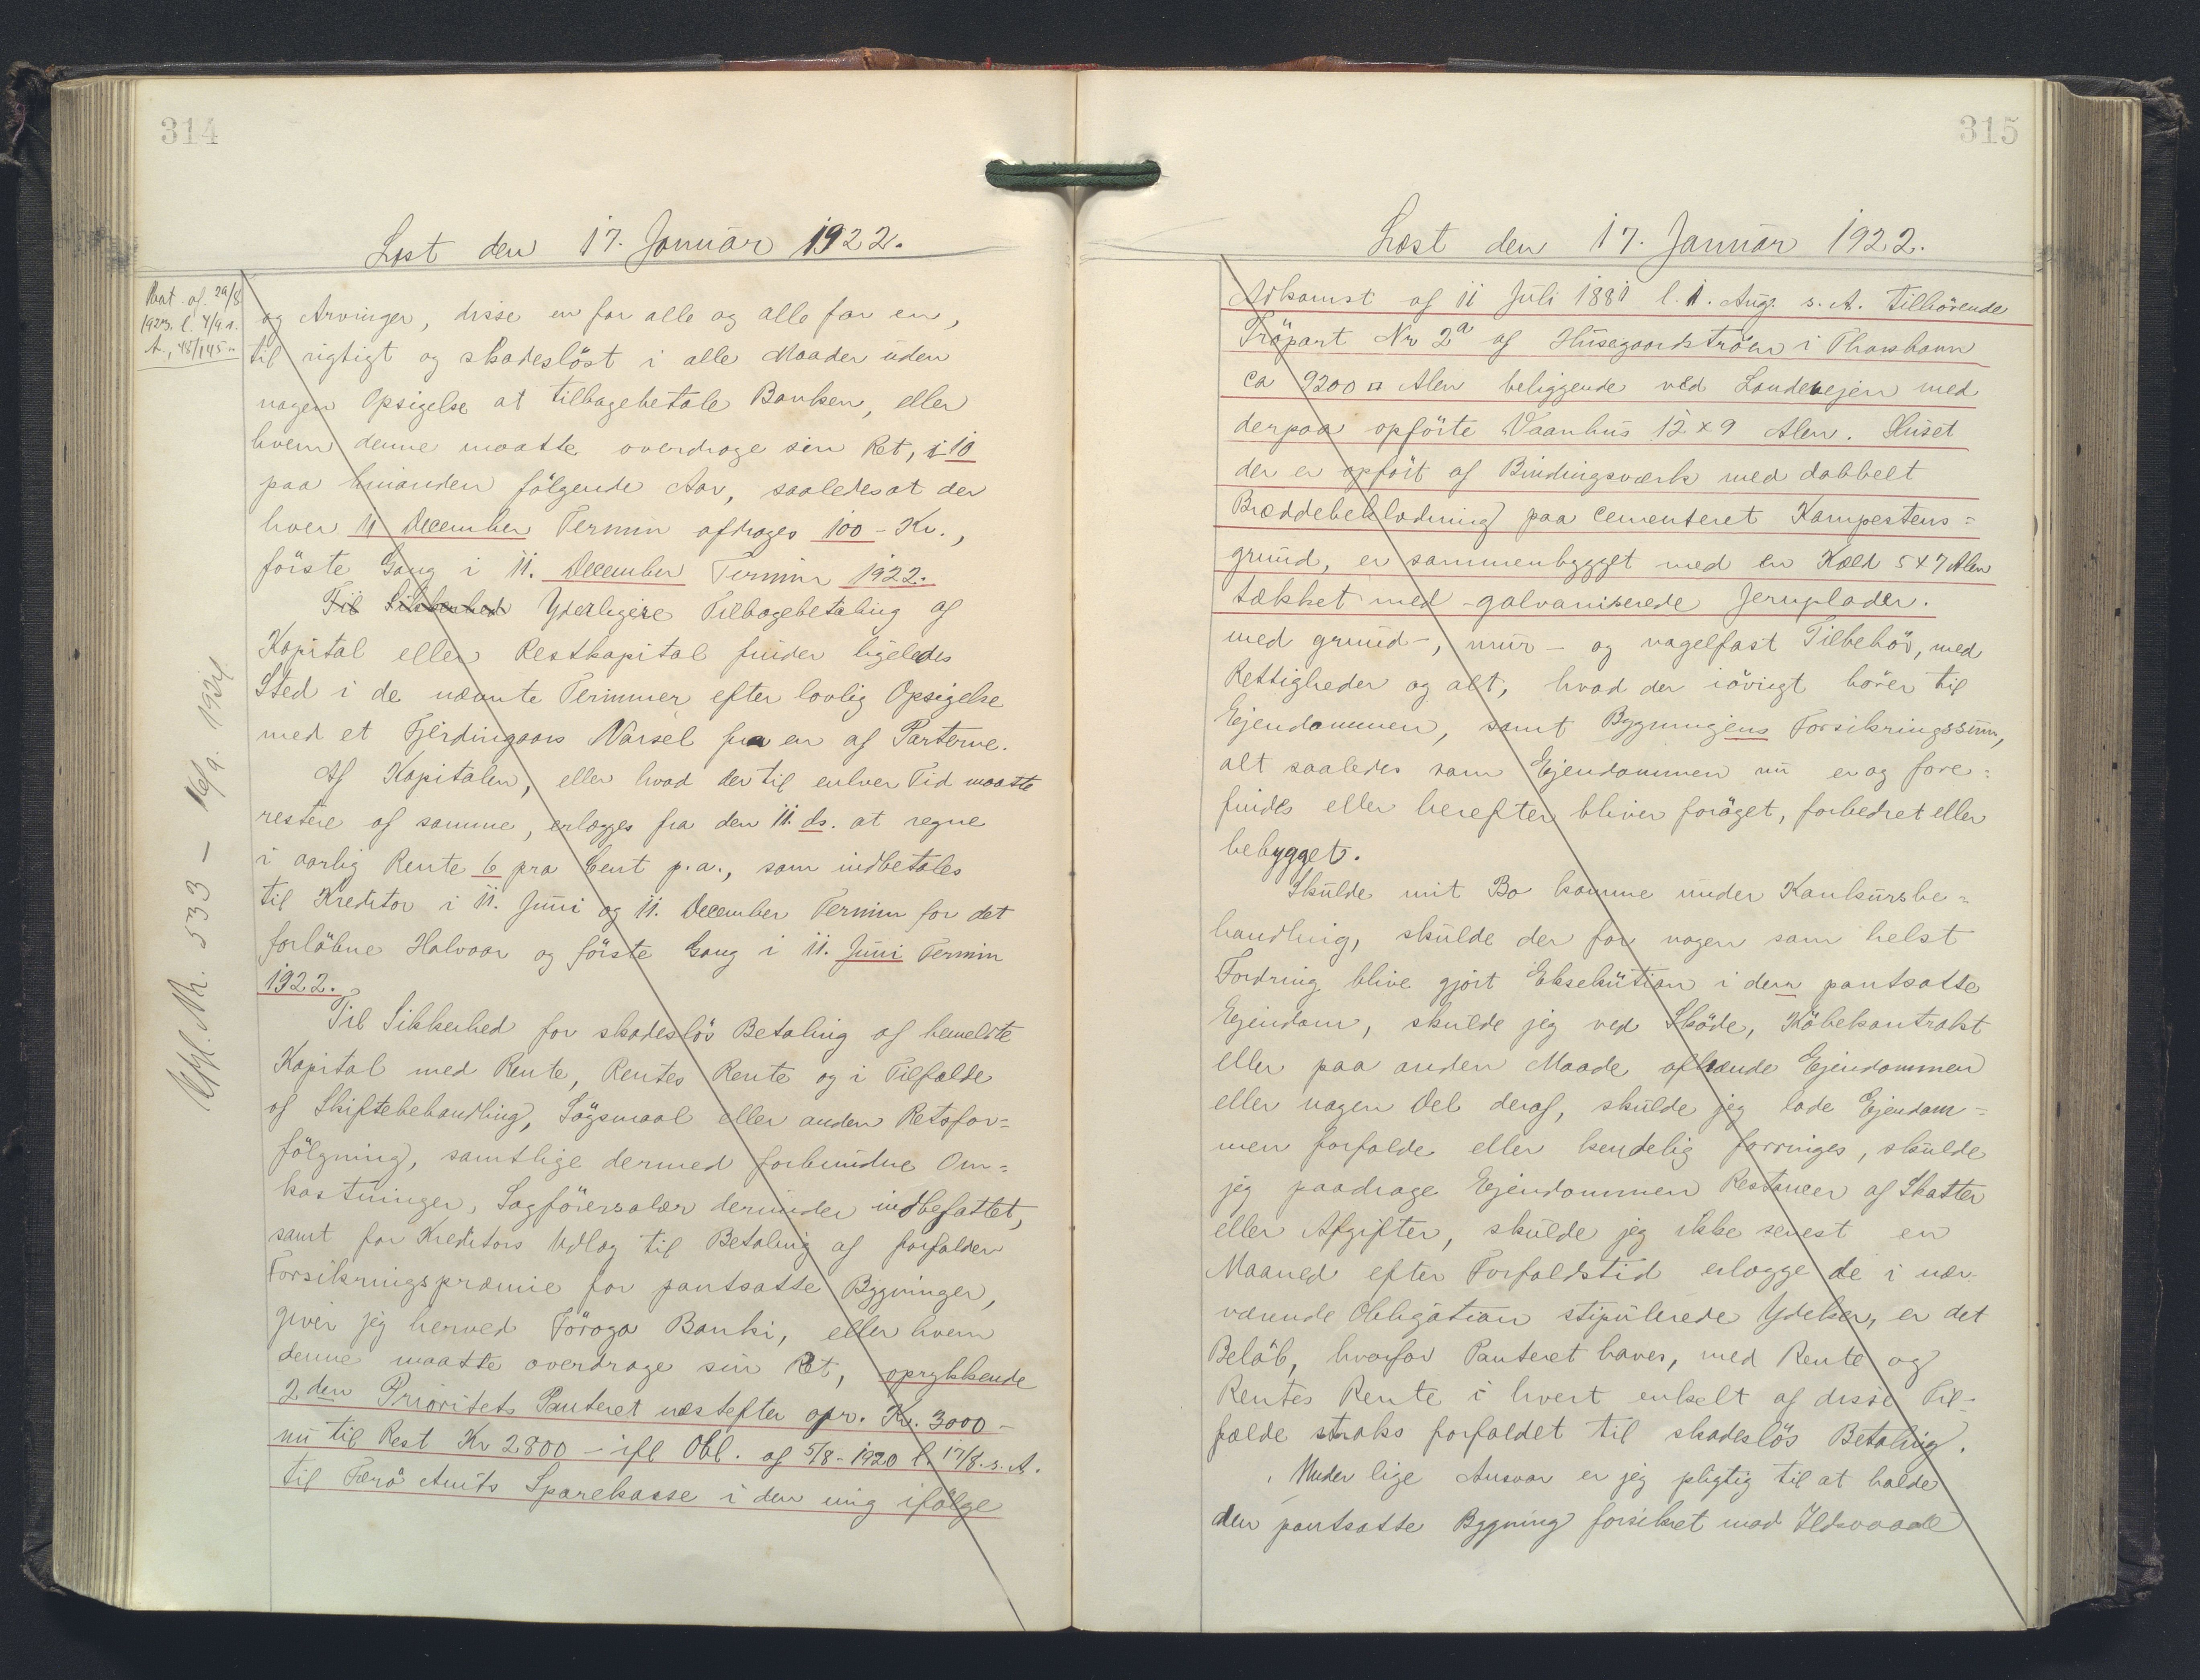 314
Læst den 17. Januar 1922.
1923. l. 4/9 s.
A., 45/145
og Arvinger, disse en for alle og alle for en,
til rigtigt og skadesløst i alle Maader uden
nogen Opsigelse at tilbagebetale Banken, eller
hvem denne maatte overdrage sin Ret, i 10
paa hinanden følgende Aar, saaledes at der
hver 11 December Termin afdrages 100 - Kr.,
første Gang i 11. December Termin 1922.
Til Sikkerhed Yderligere Tilbagebetaling af
Kapital eller Restkapital finder ligeledes
Sted i de nævnte Terminer efter lovlig Opsigelse
med et Fjerdingaars Varsel fra en af Parterne.
Af Kapitalen, eller hvad der til enhver Tid maatte
restere af samme, erlægges fra den 11. ds. at regne
i aarlig Rente 6 pro Cent p.a., som indbetales
til Kreditor i 11. Juni og 11. December Termin for det
forløbne Halvaar og første Gang i 11. Juni Termin
1922.
Til Sikkerhed for skadesløs Betaling af bemeldte
Kapital med Rente, Rentes Rente og i Tilfælde
af Skiftebehandling, Søgsmaal eller anden Retsfor=
følgning, samtlige dermed forbundne Om=
kostninger, Sagførersalær derunder indbefattet,
samt for Kreditors Udlæg til Betaling af forfalden
Forsikringspræmie for pantsatte Bygninger,
giver jeg herved Föroya Banki, eller hvem
denne maatte overdrage sin Ret, oprykkende
2den Prioritets Panteret næstefter opr. Kr. 3000 -
nu til Rest Kr 2800 - ifl Obl. af 5/8 - 1920 l. 17/8. s. A.
til Færø Amts Sparekasse i den mig ifølge
Nr. 533 - 16/9 1921
315
Læst den 17. Januar 1922.
Adkomst af 11 Juli 1881 l. 1. Aug. s. A. tilhørende
Trøpart Nr 2a af Husagaardstrøen i Thorshavn
ca 9200 □ Alen beliggende ved Landevejen med
derpaa opførte Vaanhus 12 x 9 Alen. Huset
der er opført af Bindingsværk med dobbelt
Bræddebeklædning paa cementeret Kampestens=
grund, er sammenbygget med en Kæld 5 x 7 Alen
tækket med galvaniserede Jernplader.
med grund-, mur- og nagelfast Tilbehør, med
Rettigheder og alt, hvad der iøvrigt hører til
Ejendommen, samt Bygningens Forsikringssum,
alt saaledes som Ejendommen nu er og fore=
findes eller herefter bliver forøget, forbedret eller
bebygget.
Skulde mit Bo komme under Konkursbe=
handling, skulde der for nogen som helst
Fordring blive gjort Eksekution i den pantsatte
Ejendom, skulde jeg ved Skøde, Købekontrakt
eller paa anden Maade afhænde Ejendommen
eller nogen Del deraf, skulde jeg lade Ejendom=
men forfalde eller kendelig forringes, skulde
jeg paadrage Ejendommen Restancer af Skatter
eller Afgifter, skulde jeg ikke senest en
Maaned efter Forfaldstid erlægge de i nær-
værende Obligation stipulerede Ydelser, er det
Beløb, hvorfor Panteret haves, med Rente og
Rentes Rente i hvert enkelt af disse Til-
fælde straks forfaldet til skadesløs Betaling.
Under lige Ansvar er jeg pligtig til at holde
den pantsatte Bygning forsikret mod Ildsvaade